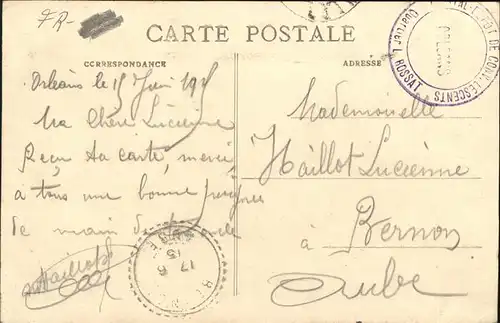 FR-
CARTE POSTALE
CORRESPONDANCE
ADRESSE
Orléans le 15 Juin 1915
Ma Chère Lucienne
Reçu ta carte, merci,
à tous une bonne poignée
de main
Mademoiselle
Haillot Lucienne
à
Bernon
Aube
DEPOT DE CONVALESCENTS
ROSSAT
17 6
15